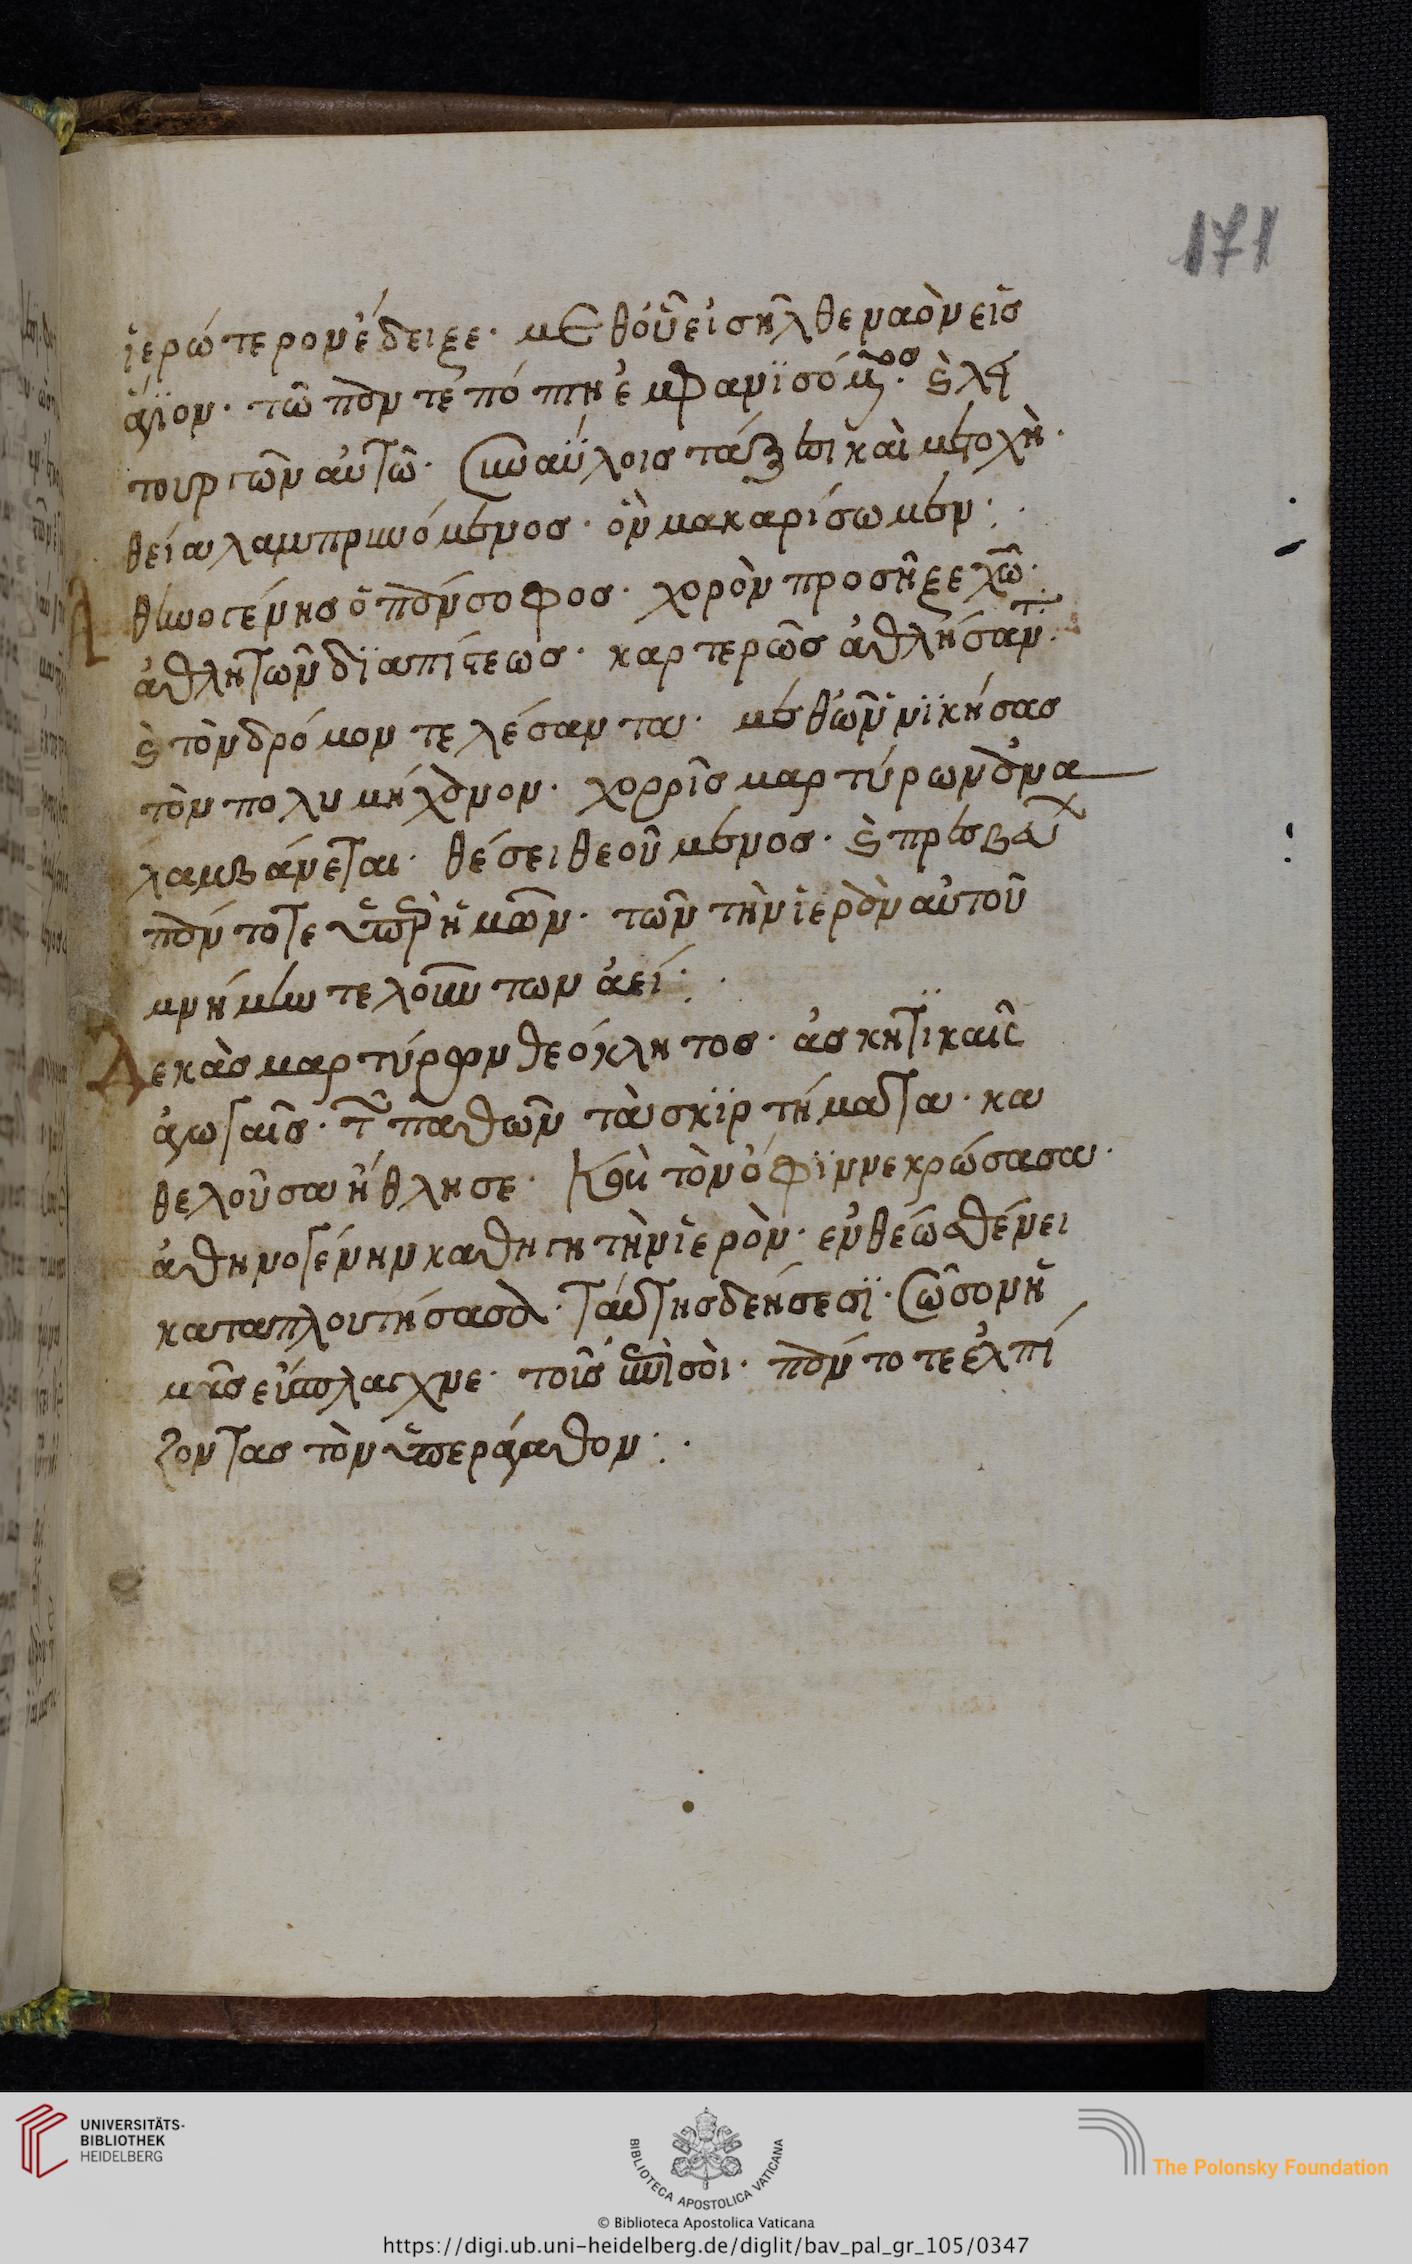 171
ἱερώτερον ἔδειξε· μεθ' οὗ εἰσῆλθε ναὸν εἰς
ἅγιον· τῶ παντεπόπτη ἐμφανισόμενος· καὶ λει
τουργῶν αὐτῶ· σὺν αὔλοις τάξεσι καὶ μετοχῆ·
θεία λαμπρυνόμενος· ὃν μακαρίσωμεν:·
Ἀθηνογένης ὁ πάνσοφος· χορὸν προσῆξε χριστῶ·
ἀθλητῶν διαπίστεως· καρτερῶς ἀθλήσαντα·
καὶ τὸν δρόμον τελέσαντα· μεθ' ὧν νικήσας
τὸν πολυμήχανον· χοροῖς μαρτύρων ἀνα
λαμβάνεται· θέσει θεοῦ μένος· καὶ πρεσβεύων
πάντοτε ὑπὲρ ἡμῶν· τῶν τὴν ἱερὰν αὐτοῦ
μνήμην τελούντων ἀεί:·
Δεκὰς μαρτύρων θεόκλητος· ἀσκητικαῖς
ἀγωγαῖς· τῶν παθῶν τὰ σκιρτήματα· κα
θελοῦσα ἤθλησε· καὶ τὸν ὄφιν νεκρώσασα·
ἀθηνογένην καθηγητὴν ἱερὸν· ἐνθέω σθένει
καταπλουτήσασα· ταύτης δεήσεσι· σῶσον ἡ
μᾶς εὔσπλαγχνε· τοὺς ἐπὶ σοὶ· πάντοτε ἐλπί
ζοντας τὸν ὑπεράγαθον:·
UNIVERSITÄTS-
BIBLIOTHEK
HEIDELBERG
BIBLIOTECA APOSTOLICA VATICANA
© Biblioteca Apostolica Vaticana
The Polonsky Foundation
https://digi.ub.uni-heidelberg.de/diglit/bav_pal_gr_105/0347